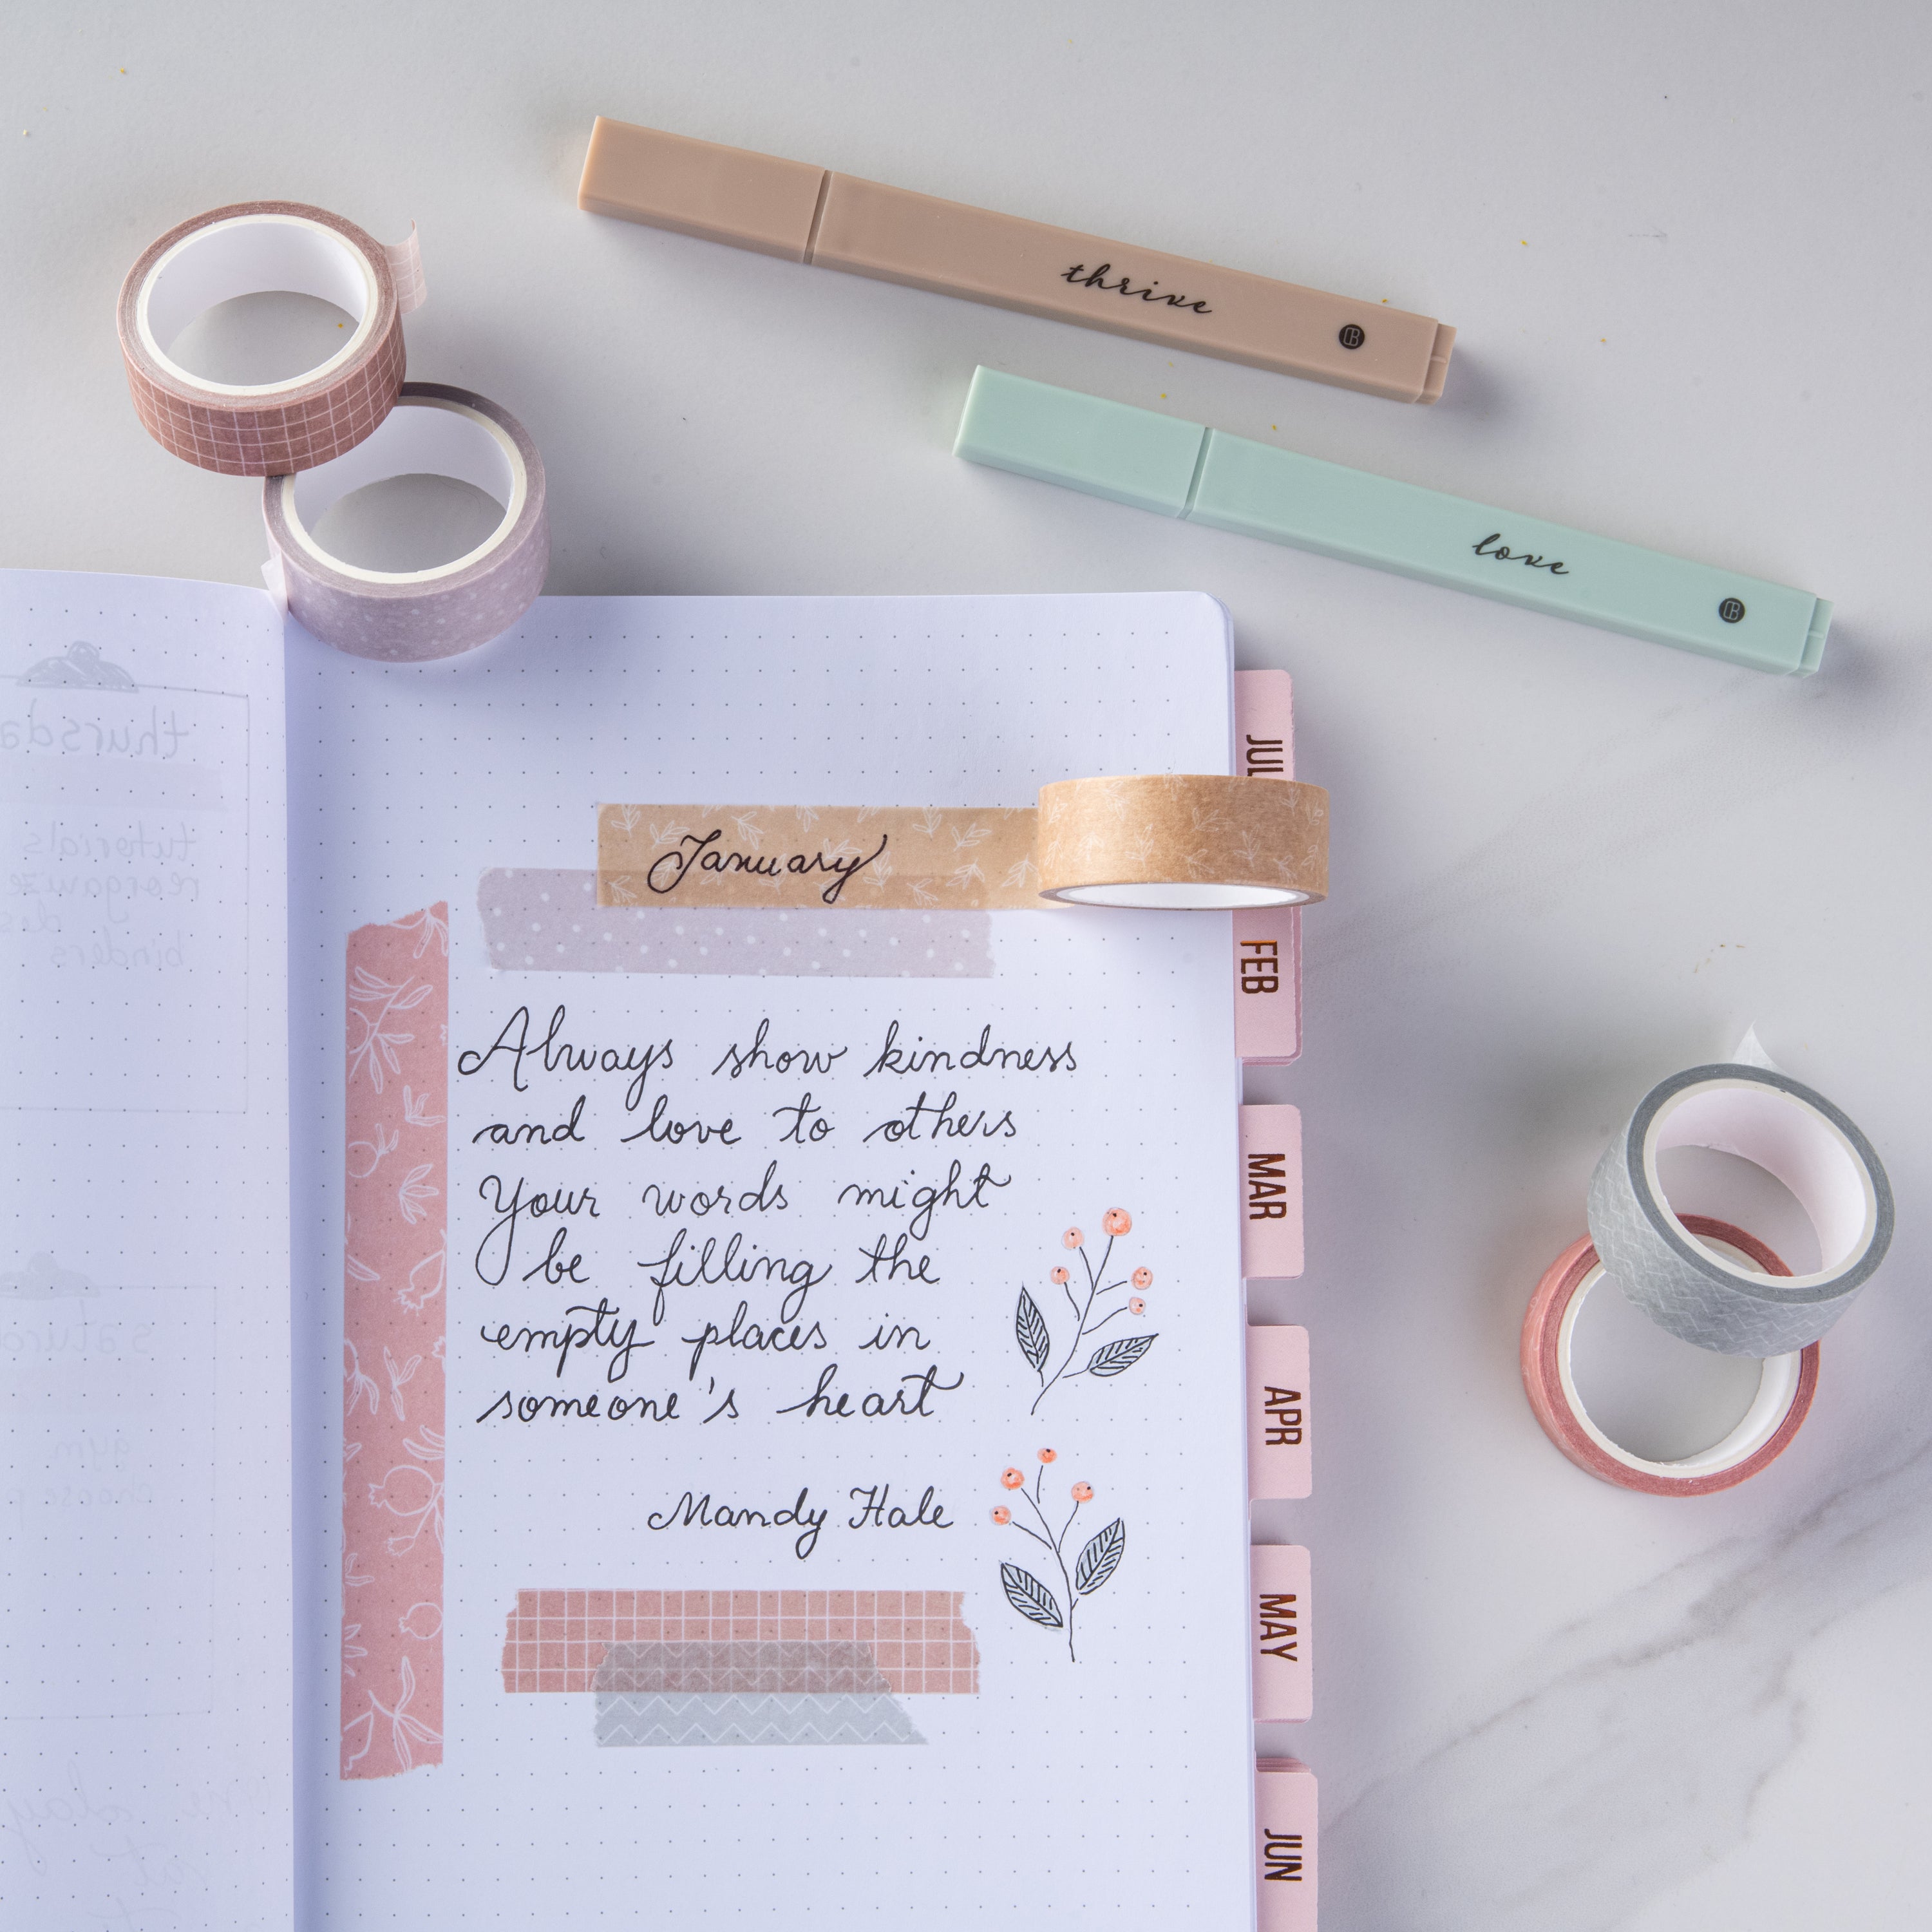 thrive
love
JUL
January
FEB
Always show kindness
and love to others
Your words might
be filling the
empty places in
someone's heart
Mandy Hale
MAR
APR
MAY
JUN
thursda
tutorials
reorganize
binders
gym